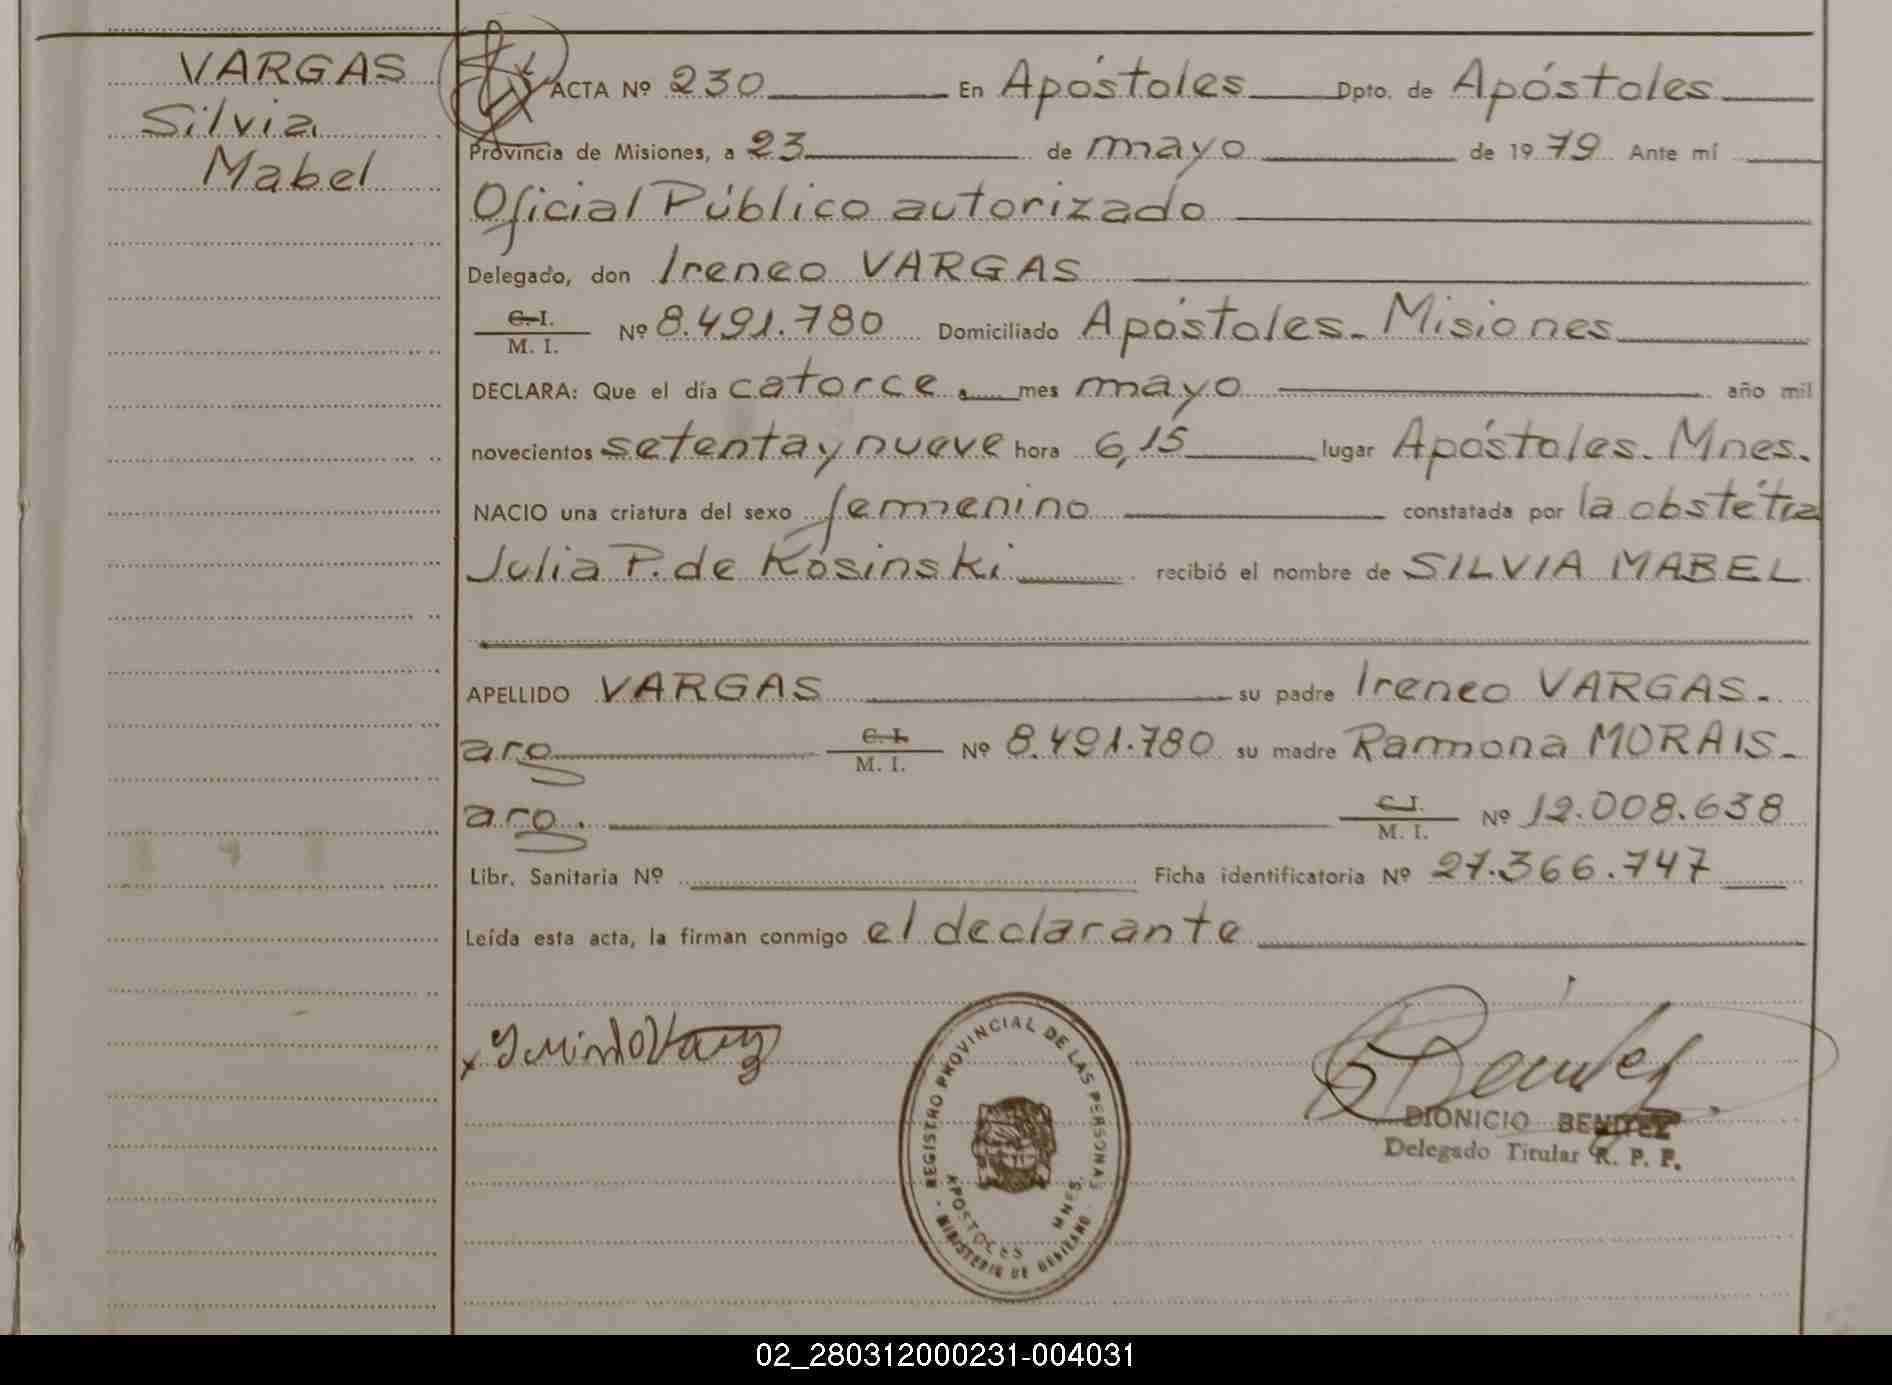 VARGAS
Silvia
Mabel
ACTA Nº 230 En Apóstoles Dpto. de Apóstoles
Provincia de Misiones, a 23 de mayo de 19 79 Ante mí
Oficial Público autorizado
Delegado, don Ireneo VARGAS
C. I.
M. I. Nº 8.491.780 Domiciliado Apóstoles - Misiones
DECLARA: Que el día catorce mes mayo año mil
novecientos setenta y nueve hora 6,15 lugar Apóstoles. Mnes.
NACIO una criatura del sexo femenino constatada por la obstétra
Julia P. de Kosinski recibió el nombre de SILVIA MABEL
APELLIDO VARGAS su padre Ireneo VARGAS -
arg C. I.
M. I. Nº 8.491.780 su madre Ramona MORAIS -
arg. C. I.
M. I. Nº 12.008.638
Libr. Sanitaria Nº Ficha identificatoria Nº 27.366.747
Leída esta acta, la firman conmigo el declarante
REGISTRO PROVINCIAL DE LAS PERSONAS
APOSTOLES MNES.
MINISTERIO DE GOBIERNO
DIONICIO BENITEZ
Delegado Titular R. P. P.
02_280312000231-004031